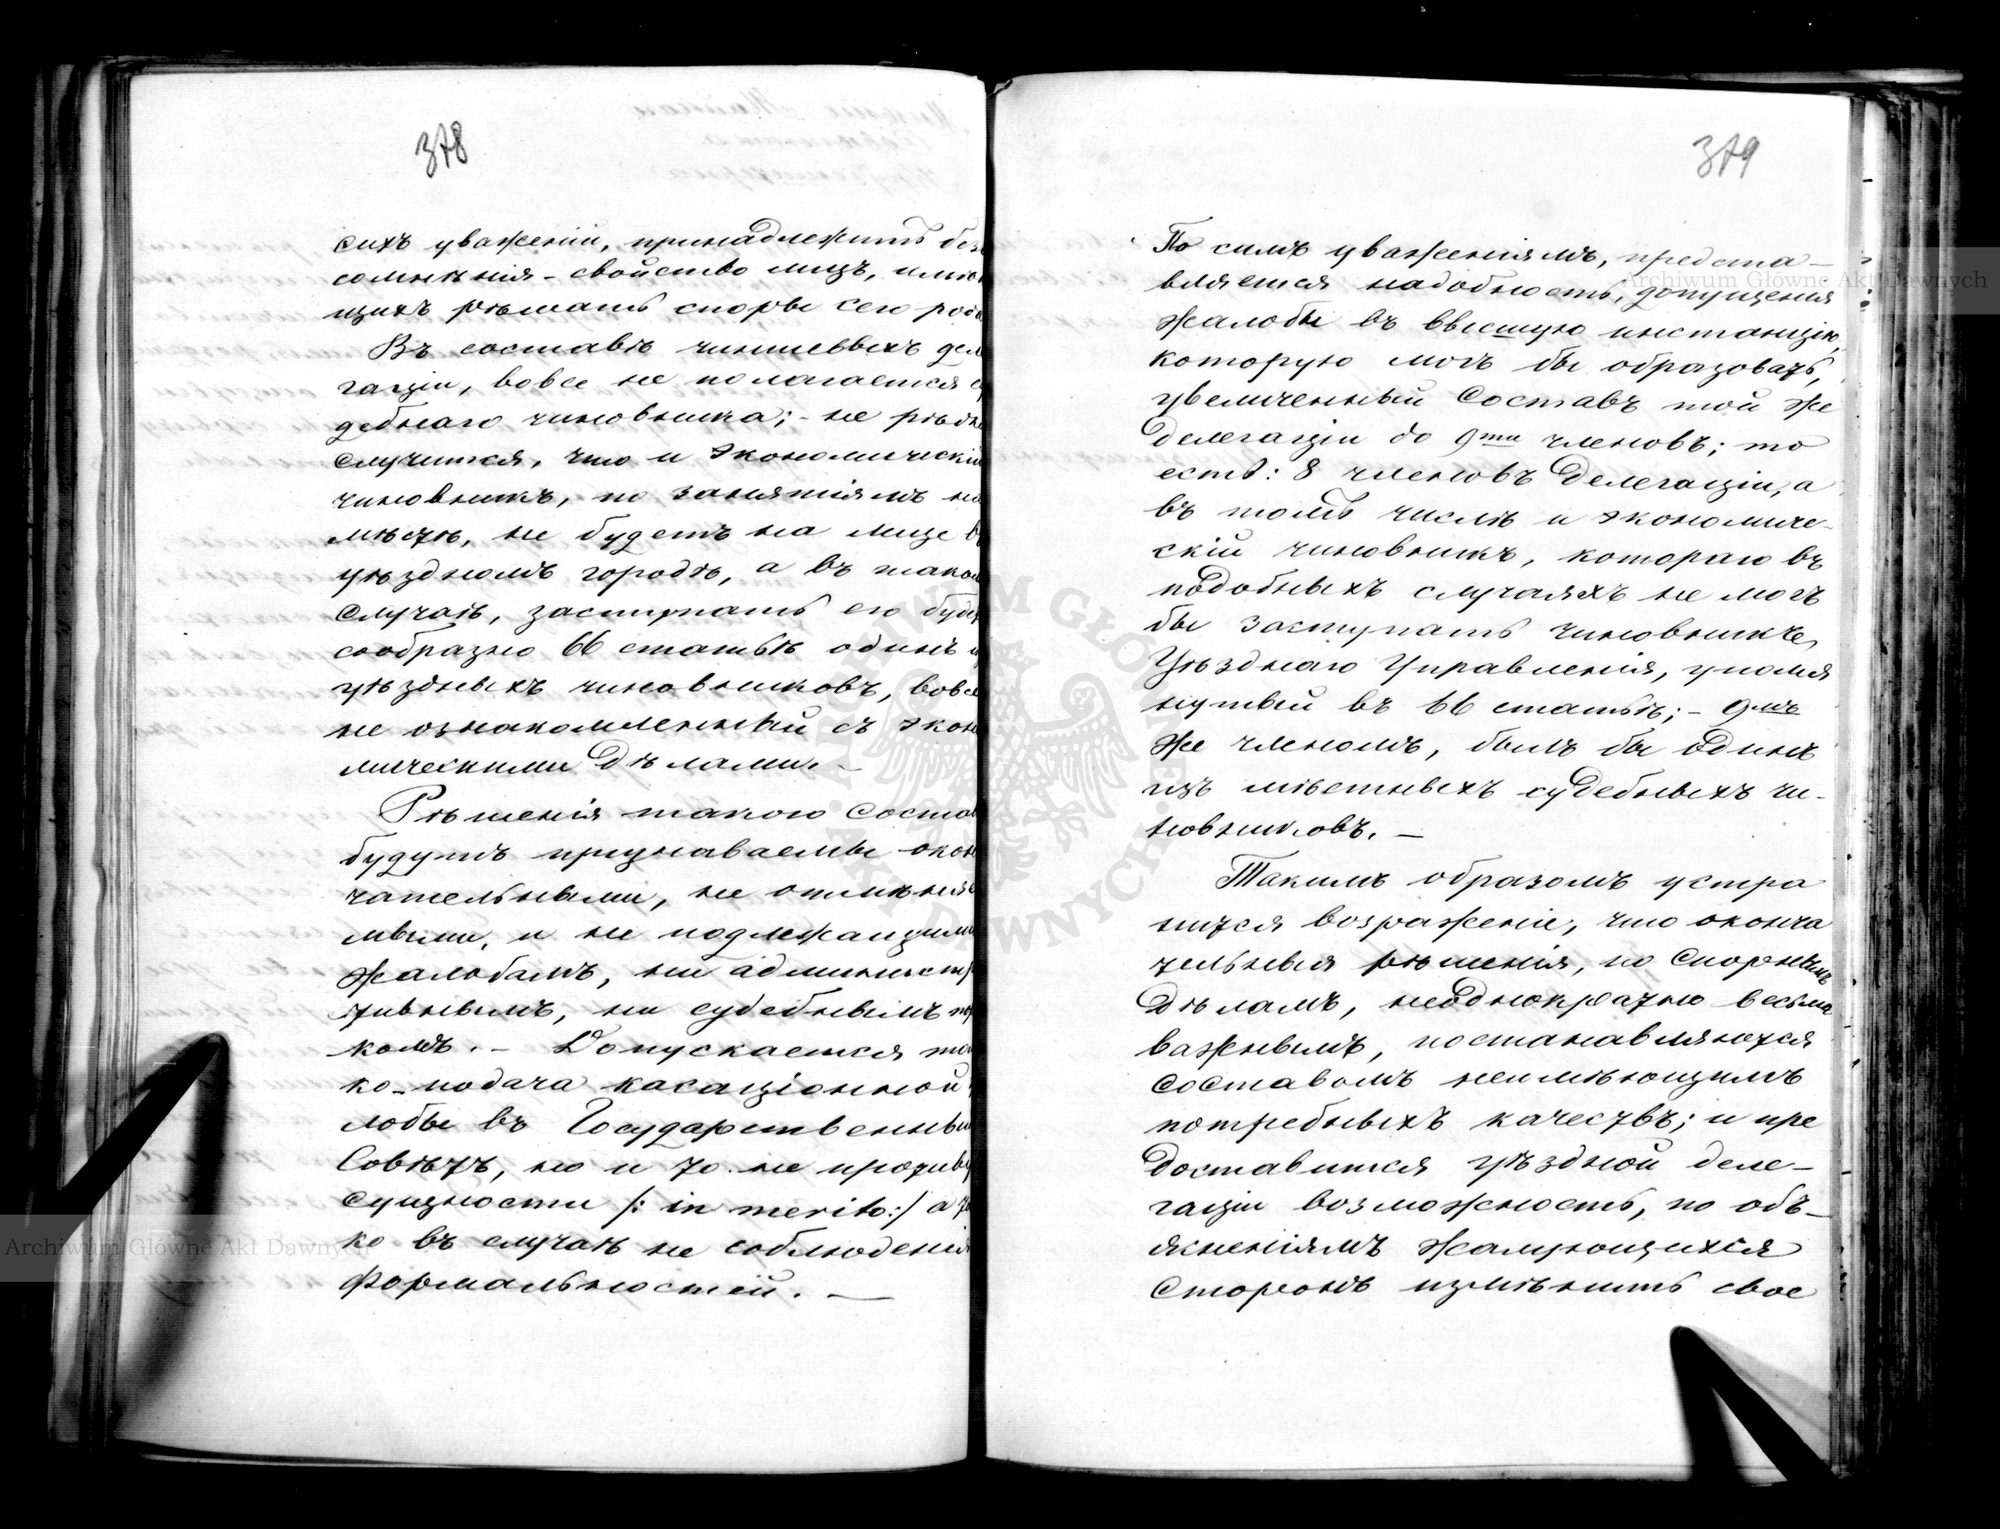 378
сихъ уваженій, принадлежитъ без
сомнѣнія - свойство лицъ, имѣю
щихъ рѣшать споры сего рода
Въ составъ чиншевыхъ деле
гаціи, вовсе не полагается су
дебнаго чиновника; - не рѣдко
случится, что и экономическій
чиновникъ, по занятіямъ на
мѣстѣ, не будетъ на лице въ
уѣздномъ городѣ, а въ таком
случаѣ, заступать его буде
сообразно 66 статьѣ одинъ и
уѣздныхъ чиновниковъ, вовсе
не ознакомленный съ эконо
мическими дѣлами. —
Рѣшенія такого состав
будутъ признаваемы окон
чательными, не отмѣняе
мыми, и не подлежащими
жалобамъ, ни администр
тивнымъ, ни судебнымъ по
комъ. - Допускается то
ко - подача касаціонной
лобы въ Государственный
Совѣтъ, но и то не противу
сущности /: in merito :/ а то
ко въ случаѣ не соблюденія
формальностей. —
379
По симъ уваженіямъ, предста-
вляется надобность, допущенія
жалобы въ высшую инстанцію,
которую могъ бы образовать,
увеличенный составъ той же
делегаціи до 9ти членовъ; то
есть: 8 членовъ делегаціи, а
въ томъ числѣ и экономиче-
скій чиновникъ, котораго въ
подобныхъ случаяхъ не могъ
бы заступать чиновникъ
Уѣзднаго Управленія, упомя
нутый въ 66 статьѣ; - 9мъ
же членомъ, былъ бы одинъ
изъ мѣстныхъ судебныхъ чи-
новниковъ. —
Такимъ образомъ устра
нится возраженіе, что оконча
тельныя рѣшенія, по спорнымъ
дѣламъ, неоднократно весьма
важнымъ, постанавляются
составомъ неимѣющимъ
потребныхъ качествъ; и пре
доставится уѣздной деле-
гаціи возможность, по объ-
ясненіямъ жалующихся
сторонъ измѣнить свое
Archiwum Główne Akt Dawnych
Archiwum Główne Akt Dawnych
ARCHIWUM GŁÓWNE AKT DAWNYCH